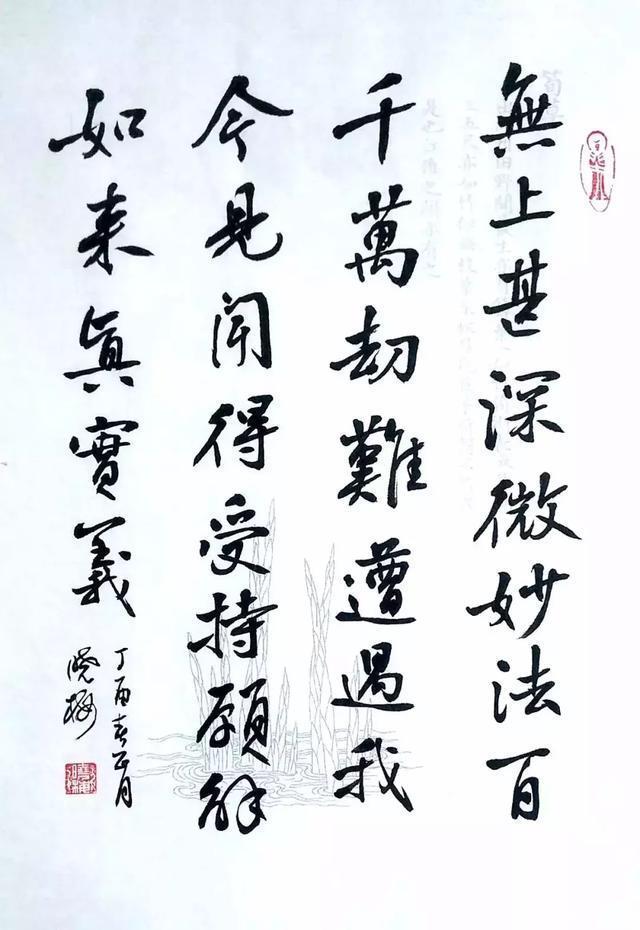 無上甚深微妙法百
千萬劫難遭遇我
今見聞得受持願解
如来真實義
丁酉春正月
晓梅